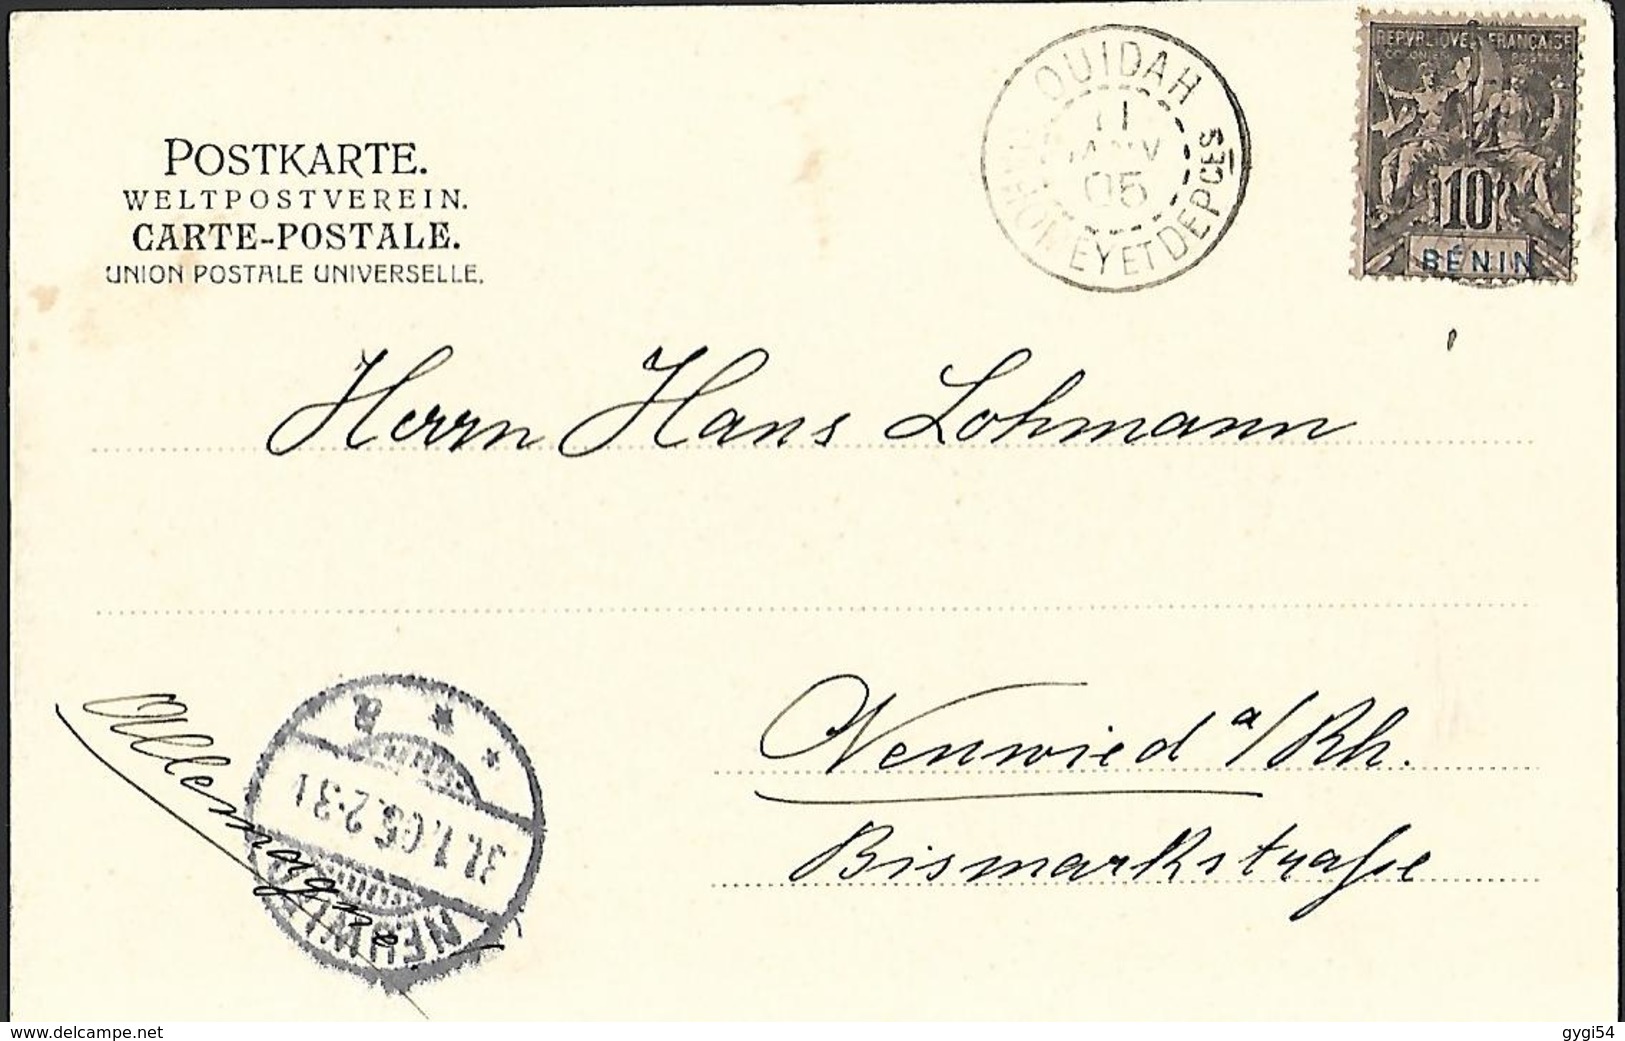 POSTKARTE.
WELTPOSTVEREIN.
CARTE-POSTALE.
UNION POSTALE UNIVERSELLE.
OUIDAH
11
JANV
05
DAHOMEY ET DEPCES
REPVBLIQVE FRANÇAISE
COLONIES POSTES
10
BÉNIN
Herrn Hans Lohmann
Neuwied a/Rh.
Bismarkstraße
Allemagne
NEUWIED
31.1.05.2-3
* * a
www.delcampe.net
gygi54